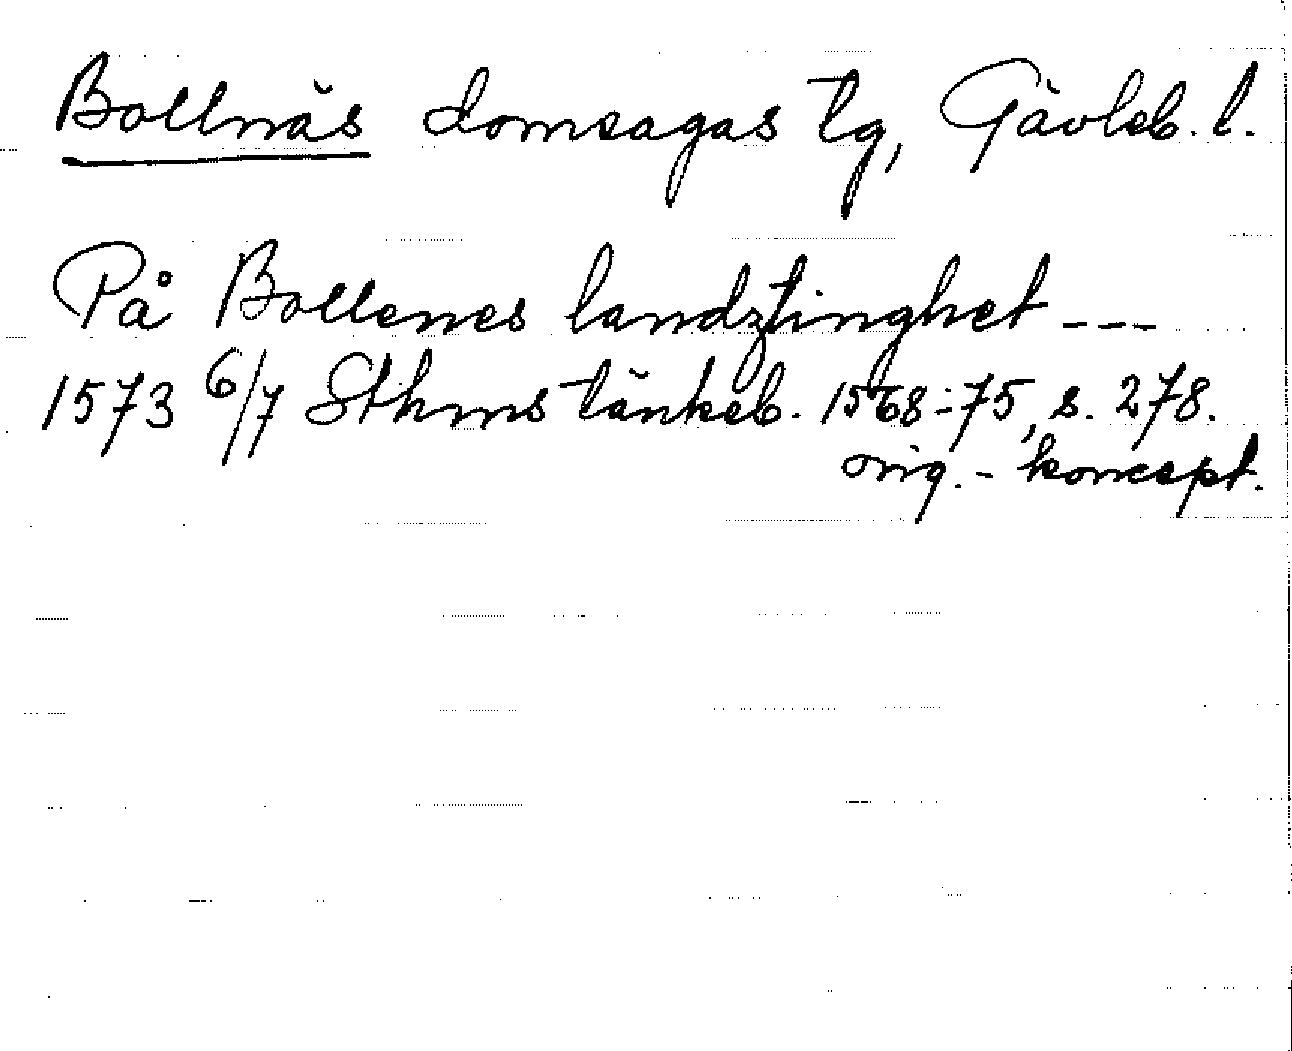 Bollnäs domsagas tg, Gävleb. l.
På Bollenes landztinghet ---
1573 6/7 Sthms tänkeb. 1568-75, s. 278.
orig.-koncept.